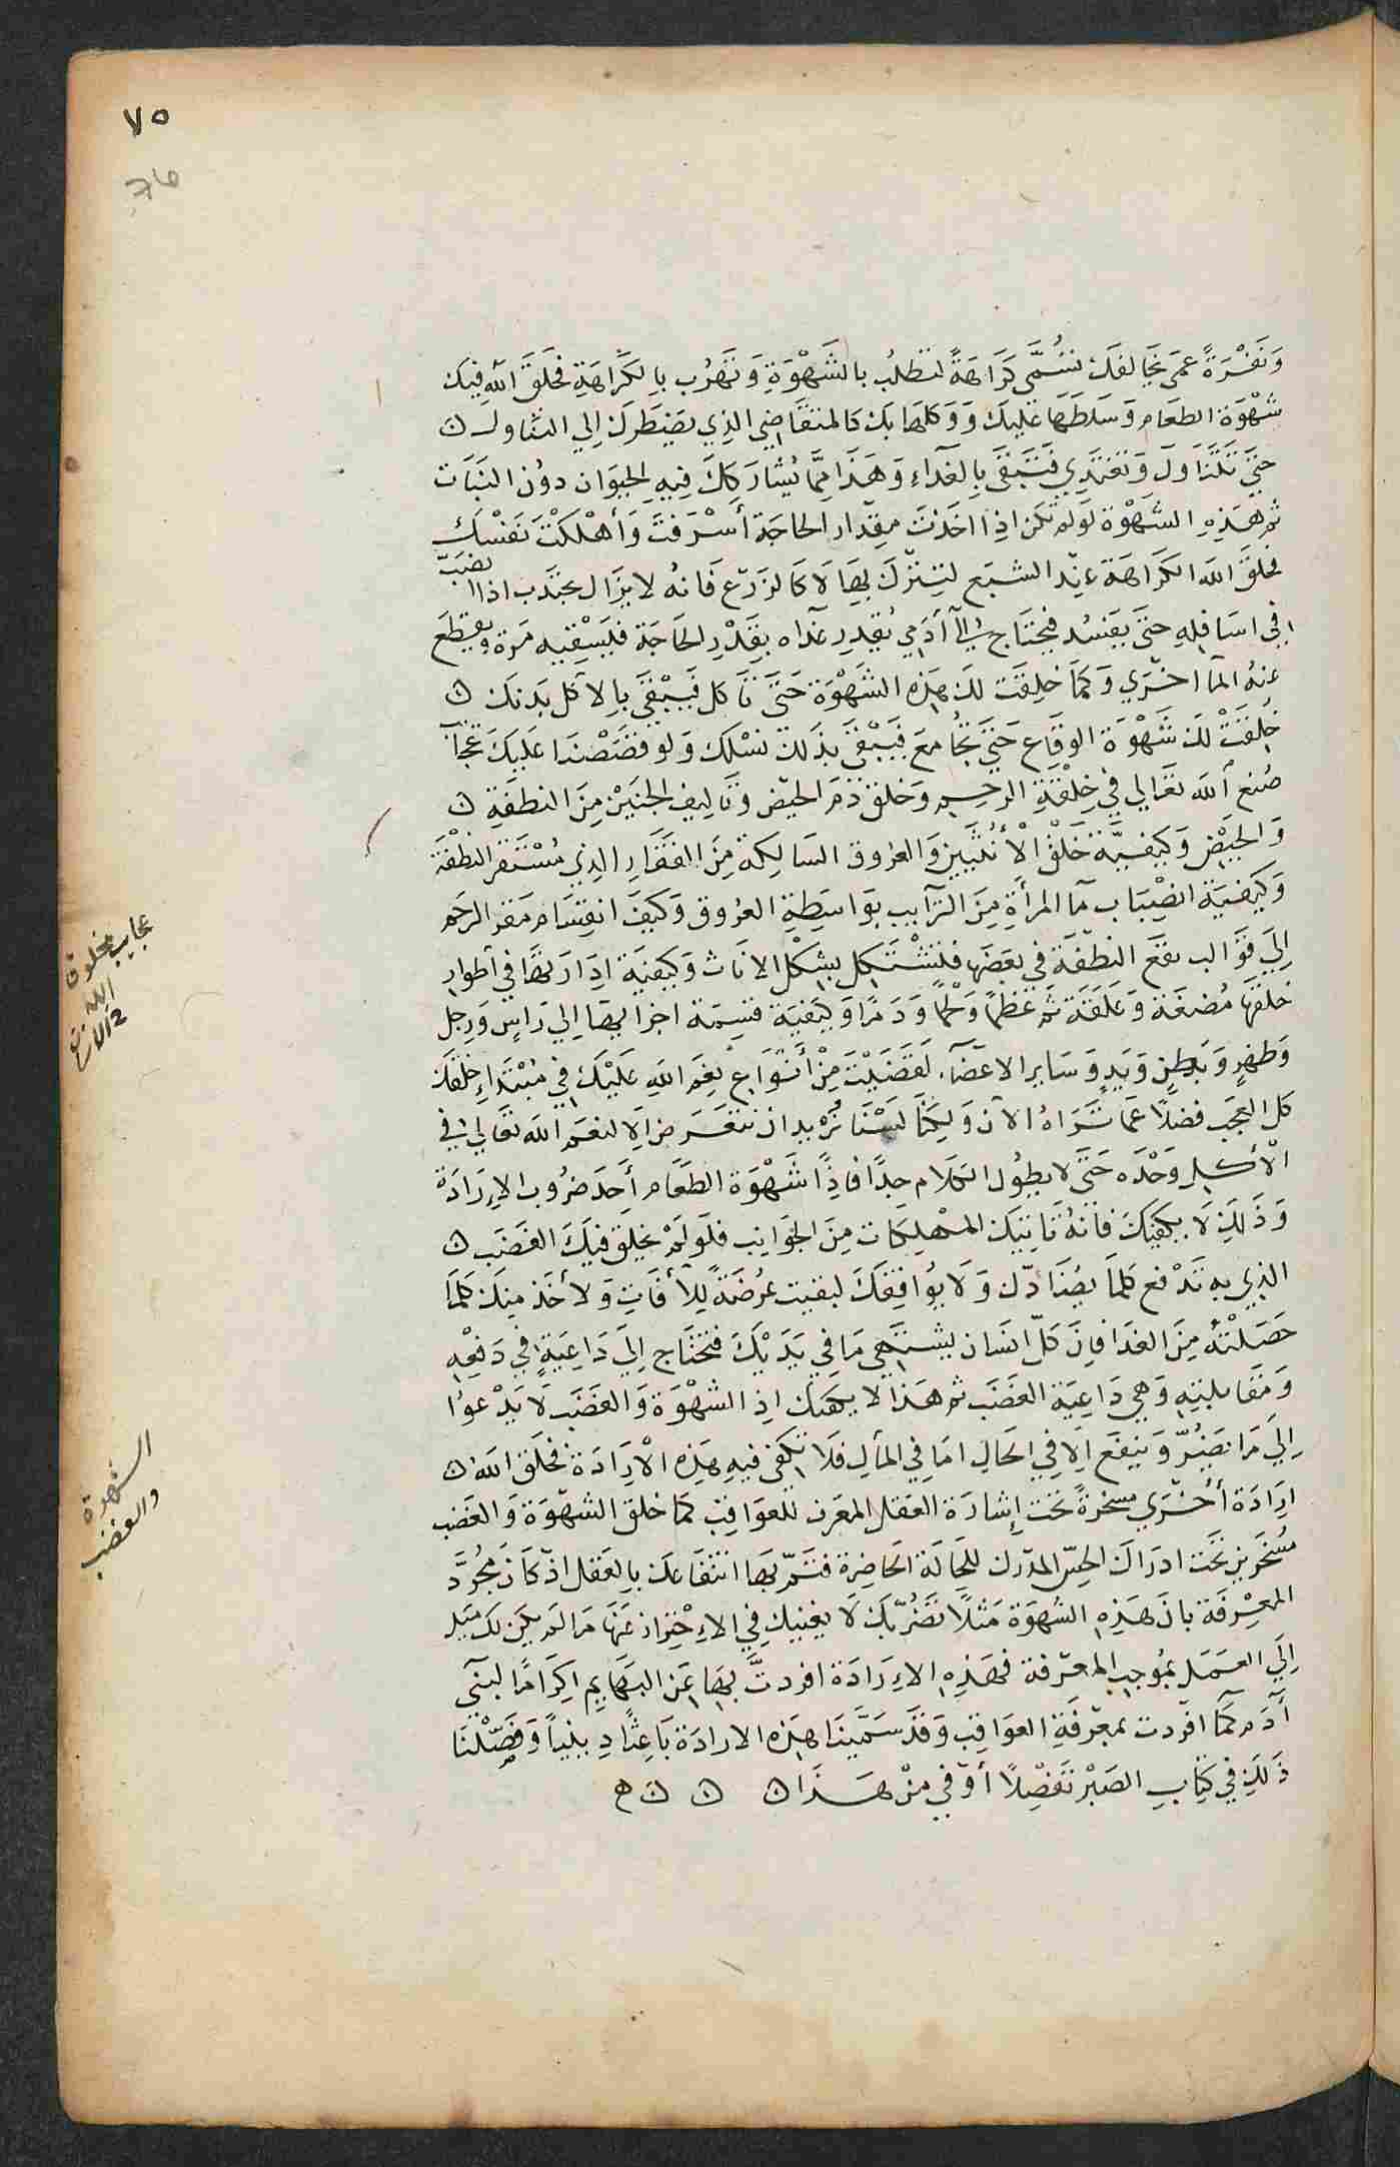 ٧٥
وَنَفْرَةً عمى يخالفك تسُمَّى كَرَاهَةً لتطلُب بالشَهْوَةِ وَتَهرُب بِالكَرَاهَةِ فخَلَقَ الله فيك
شهْوَة الطعام وَسَلطَهَا عَليكَ وَوَكلهَا بك كالمتقَاضِي الذِي يضِطَرك إلي التناول ں
حتىَ تتَنَاولَ وَتغتذِي فتَبقَى بِالغدَآءِ وَهَذَا ممَّا يُشَاركَكَ فيهِ الحيوَان دوُن النبَات
ثم هَذِهِ الشهْوَة لوَلم تكن اذِا اخَذتَ مقِدَار الحاجَة أسْرَفتَ وَأهْلَكْتَ نَفسْك
فخلقَ الله الكرَاهَة عِند الشبَع لتترُك بهَا لاَ كالزرَع فَانهُ لايزَال يجتذَب اذا انصَبّ
في اسَافلِهِ حتىَ يفسُد فيحتَاج إلي آدَمي يُقدِر غذاه بقَدْرِ الحَاجَة فليَسْقيهِ مَرة ويقطع
عَنهُ المآ اخرَي وَكمَا خلِقَت لك هذِه الشَهْوَة حَتىَ تَاكل فَيَبْقَى بالاكل بَدنك ں
خلِقَتْ لك شَهْوَة الوقَاع حَتيَ تُجَامعَ فَيَبْقىَ بذَلك نسْلك وَلو قصَصْنَا عَليكَ عجآيَب
صُنع الله تعَالي في خِلْقَةِ الرحِم وَخلق دَم الحيَض وَتَاليف الجنَيْن مِنَ النطفَةِ ں
وَالحَيْض وَكَيفيّة خَلقْ الأُنثَيَين وَالعرُوق السَالِكة مِنَ الفقَارِ الذِي مُسْتَقر النطْفَة
وَكيَفيَة انصِبَاب مآ المرأةِ مِنَ الترآيب بوَاسِطَةِ العرُوق وَكيفَ انقِسَام مَقر الرحَم
إليَ قوَالب تقعَ النطفَة في بعَضهَا فتتشَكل بشِكْل الانَاث وَكيفيَة ادَارَتهَا في أطوار
خلقهَا مُضغَة وَعَلقَة ثم عَظمًا وَلحْمًا وَدَمًا وَكيَفيَة قسِمَة اجزَائهَا إلي رَاسٍ وَرِجل
وَظهرٍ وَبَطنٍ وَيَدٍ وَسَاير الاعَضآء. لَقضَيْتَ مِنْ أَنوَاعِ نِعَم اللهِ عَليْكَ في مُبتَدَاءِ خلقك
كل العجَب فضلًا عمَا ترَاهُ الآن وَلكِنّا لسْنَا نُرْيد ان نتعَرَض إلا لنعَم الله تعَالي في
الأكل وَحْدَه حَتىَ لا يطوُل الكلام جدًّا فاذِا شَهْوَة الطعَام أحَد ضرُوب الإرَادَة
وَذَلكَ لاَ يكفيكَ فانهُ تَاتيك المهلِكَات مِنَ الجوَانِب فلَولَمْ يخلق فيكَ الغَضَب ں
الذِي به تَدْفع كلمَا يضُادّك وَلاَيوُافِقكَ لبقيت عرُضَةً للآفاتِ وَلأُخذ منِك كلمَا
حَصَلْتَهُ مِنَ الغدَا فإنَ كلّ انسَان يَشتَهي مَا في يَدَيْكَ فتحتَاج إليَ دَاعِيَةٍ في دَفعْهِ
وَمُقَابلتِهِ وَهِي دَاعِيَة الغَضَب ثم هَذَا لا يكفيك إذِ الشهْوَة وَالغضَب لاَ يَدْعوُا
إليَ مَا يضُرّ وَينفعَ إلاَ في الحَالِ امَا في المآلِ فلاَ تكفي فيهِ هذِه الإرَادَة فخلَق الله ں
ارَادَة أخْرَي مسخرَةً تحَت إشارَة العَقل المعَرف للعوَاقِب كمَا خلق الشهْوَة وَالغَضَب
مُسخرَين تحَت ادرَاك الحِسّ المدَرك للحَالَة الحَاضِرة فتمّ بهَا انتفَاعك بالعَقل اذ كاَن مجُرّدَ
المعِرفَة بانَ هَذِهِ الشهوَة مَثلًا تضَُرّبَك لاَ يغنيكَ في الاِحْترِاز عَنهَا مَا لم يكن لك ميَل
إليَ العمَل بموُجب المعَرفة فهَذِهِ الاِرَادَة افردتَّ بهَا عَن البهَايم إكرَامًا لبنيَ
آدَم كمَا افردت بمعَرفَةِ العوَاقِب وَقد سَمّينَا هذِه الارادَة بَاعِثًا دِينيًا وَفصَّلْنَا
ذَلكَ في كِتابِ الصَبْر تفَصْيلًا أوْفي مِنْ هَذَا ں ں ں ح
عجايب مخلوق
الله
الشهوة
والغضب